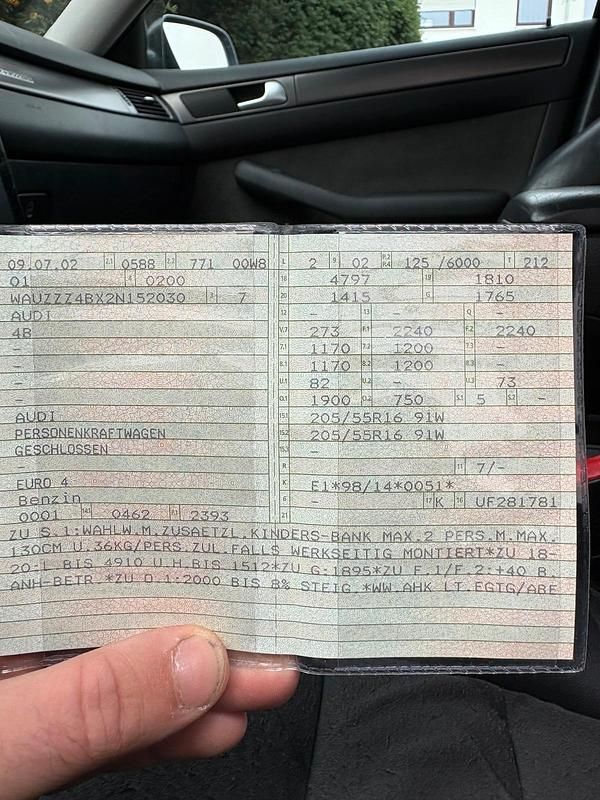 09.07.02 2.1 0588 2.2 771 00W8 L 2 9 02 P.2 P.4 125 /6000 T 212
01 4 0200 18 4797 19 1810
WAUZZZ4BX2N152030 3 7 20 1415 G 1765
AUDI 12 - 13 - Q -
4B V.7 273 F.1 2240 F.2 2240
- 7.1 1170 7.2 1200 7.3 -
- 8.1 1170 8.2 1200 8.3 -
- U.1 82 U.2 - U.3 73
- O.1 1900 O.2 750 S.1 5 S.2 -
AUDI 15.1 205/55R16 91W
PERSONENKRAFTWAGEN 15.2 205/55R16 91W
GESCHLOSSEN 15.3 -
- R 11 7/-
EURO 4 K E1*98/14*0051*
Benzin 6 - 17 K 16 UF281781
0001 14.1 0462 P.1 2393 21
ZU S.1:WAHLW.M.ZUSAETZL.KINDERS-BANK MAX.2 PERS.M.MAX.
130CM U.36KG/PERS.ZUL.FALLS WERKSEITIG MONTIERT*ZU 18-
20:L.BIS 4910 U.H.BIS 1512*ZU G:1895*ZU F.1/F.2:+40 B.
ANH-BETR.*ZU O.1:2000 BIS 8% STEIG.*WW.AHK LT.EGTG/ABE